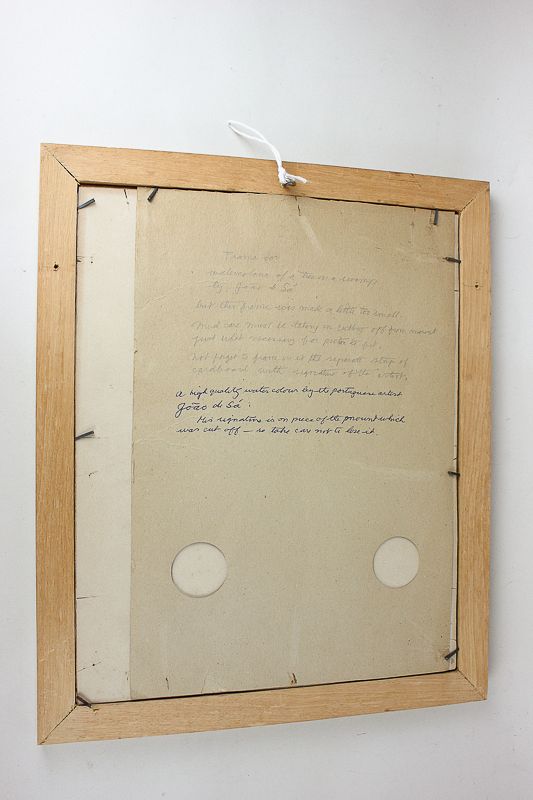 Frame for
watercolour of a tree on a swamp
by João de Sá
but this frame was made a little too small.
Much care must be taken in cutting off from mount
just what necessary for picture to fit.
Not forget to frame in it the separate strip of
cardboard with signature of the artist.
A high quality water colour by the portuguese artist
João de Sá.
His signature is on piece of the mount which
was cut off — so take care not to lose it